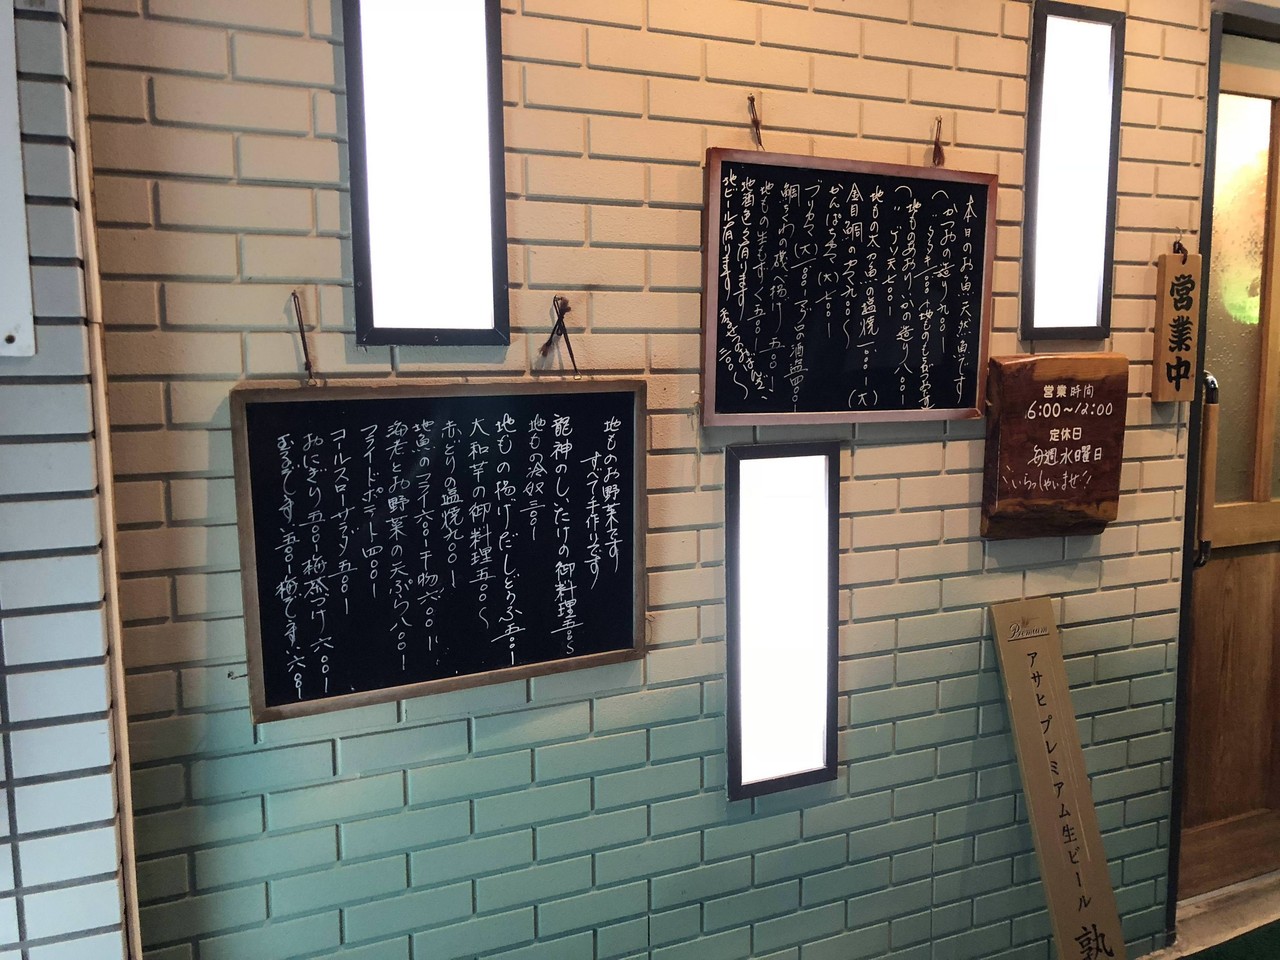 本日のお魚天然魚です
かつおの造り九〇〇ー
地ものあおりいかの造り八〇〇ー
地もの太刀魚の塩焼
(大)
金目鯛のカマ九〇〇〜
かんぱちカマ(大)七〇〇ー
ブリカマ(大)
マグロの酒盗四〇〇ー
鯛ちくわの磯べ揚げ五〇〇ー
地もの生もずく五〇〇ー
地酒色々有ります
地ビール有ります
地ものお野菜です
すべて手作りです
龍神のしいたけの御料理五〇〇〜
地もの冷奴三〇〇ー
地もの揚げだしどうふ五〇〇ー
大和芋の御料理五〇〇〜
赤どりの塩焼九〇〇ー
地魚のフライ六〇〇ー干物六〇〇ー
海老とお野菜の天ぷら八〇〇ー
フライドポテト四〇〇ー
コールスローサラダ五〇〇ー
おにぎり五〇〇ー梅茶づけ六〇〇ー
営業時間
6:00〜12:00
定休日
毎週水曜日
いらっしゃいませ!!
営業中
Premium
アサヒ プレミアム生ビール 熟